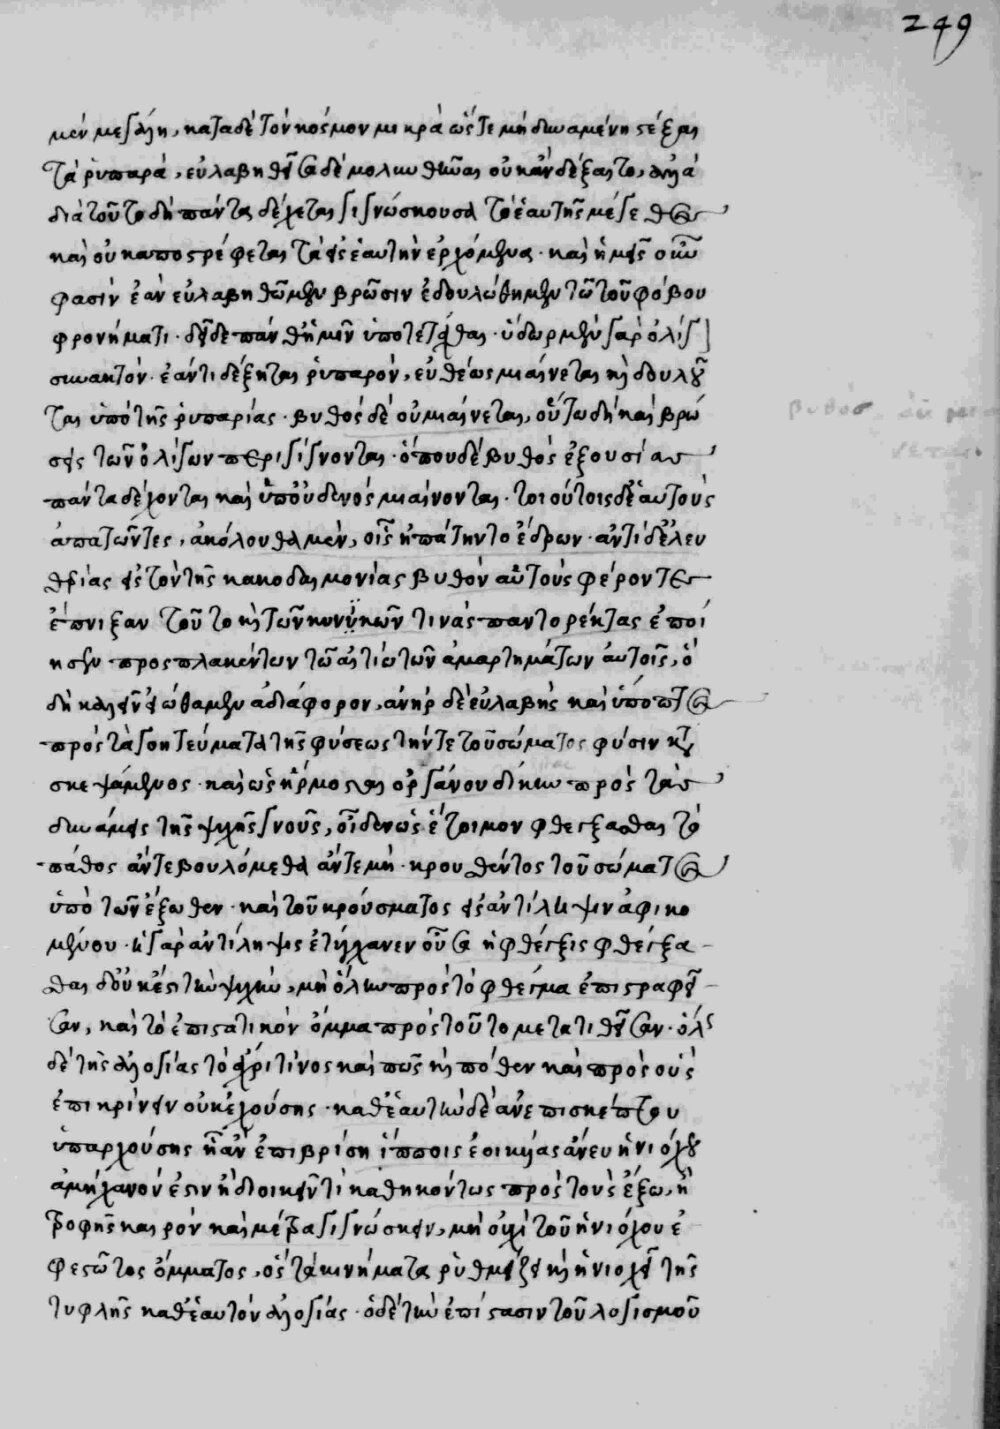 249
μὲν μεγάλη, κατὰ δὲ τὸν κόσμον μικρὰ ὥστε μὴ δυναμένη στέξαι
τὰ ῥυπαρά, εὐλαβηθεῖσα δὲ μολυνθῶσαι οὐκ ἂν δέξαιτο, ἀλλὰ
διὰ τοῦτο δὴ πάντα δέχεται γιγνώσκουσα τὸ ἑαυτῆς μέγεθος
καὶ οὐκ ἀποστρέφεται τὰ εἰς ἑαυτὴν ἐρχόμενα. καὶ ἡμεῖς οὖν
φασὶν ἐὰν εὐλαβηθῶμεν βρῶσιν ἐδουλώθημεν τῶ τοῦ φόβου
φρονήματι. δεῖ δὲ πάνθ' ἡμῖν ὑποτετάχθαι. ὕδωρ μὲν γὰρ ὀλίγ
συνακτόν. ἐάν τι δέξηται ῥυπαρόν, εὐθέως μιαίνεται καὶ δουλοῦ
ται ὑπὸ τῆς ῥυπαρίας. βυθὸς δὲ οὐ μιαίνεται, οὕτω δὴ καὶ βρώ
σεις τῶν ὀλίγων περιγίγνονται. ὅπου δὲ βυθὸς ἐξουσίας
πάντα δέχονται καὶ ὑπ' οὐδενὸς μιαίνονται. τοιούτοις δὲ ἑαυτοὺς
ἀπατῶντες, ἀκόλουθα μὲν, οἷς ἠπάτηντο ἔδρων. ἀντὶ δὲ ἐλευ
θερίας εἰς τὸν τῆς κακοδαιμονίας βυθὸν αὑτοὺς φέροντες
ἔπνιξαν τοῦτο καὶ τῶν κυνικῶν τινὰς παντορέκτας ἐποί
ησεν προσπλακέντων τῶ αἰτίω τῶν ἁμαρτημάτων αὐτοῖς, ὃ
δὴ καλεῖν εἰώθαμεν ἀδιάφορον, ἀνὴρ δὲ εὐλαβὴς καὶ ὕποπτος
πρὸς τὰ γοητεύματα τῆς φύσεως τήν τε τοῦ σώματος φύσιν κατε
σκεψάμενος. καὶ ὡς ἥρμοσται ὀργάνου δίκην πρὸς τὰς
δυνάμεις τῆς ψυχῆς γνοὺς, οἶδεν ὡς ἕτοιμον φθέγξασθαι τὸ
πάθος ἄν τε βουλόμεθα ἄν τε μὴ. κρουσθέντος τοῦ σώματος
ὑπὸ τῶν ἔξωθεν. καὶ τοῦ κρούσματος εἰς ἀντίληψιν ἀφικο
μένου. ἡ γὰρ ἀντίληψις ἐτύγχανεν οὖσα ἡ φθέγξις φθέγξα
σθαι δ' οὐκ ἔστι τὴν ψυχὴν, μὴ ὅλην πρὸς τὸ φθέγμα ἐπιστραφεῖ
σαν, καὶ τὸ ἐπιστατικὸν ὄμμα πρὸς τοῦτο μετατιθεῖσαν. ὅλως
δὲ τῆς ἀλογίας τὸ ἄχρι τίνος καὶ πῶς καὶ πόθεν καὶ πρὸς οὓς
ἐπικρίνειν οὐκ ἐχούσης. καθ' ἑαυτὴν δὲ ἀνεπισκέπτου
ὑπαρχούσης ἧ ἂν ἐπιβρίση ἵπποις ἐοικυίας ἄνευ ἡνιόχου
ἀμήχανόν ἐστιν ἢ διοικεῖν τι καθηκόντως πρὸς τοὺς ἔξω, ἢ
τροφῆς καιρὸν καὶ μέτρα γιγνώσκειν, μὴ οὐχὶ τοῦ ἡνιόχου ἐ
φεστῶτος ὄμματος, ὃς τὰ κινήματα ῥυθμίζει καὶ ἡνιοχεῖ τῆς
τυφλῆς καθ' ἑαυτὸν ἀλογίας. ὁ δὲ τὴν ἐπίστασιν τοῦ λογισμοῦ